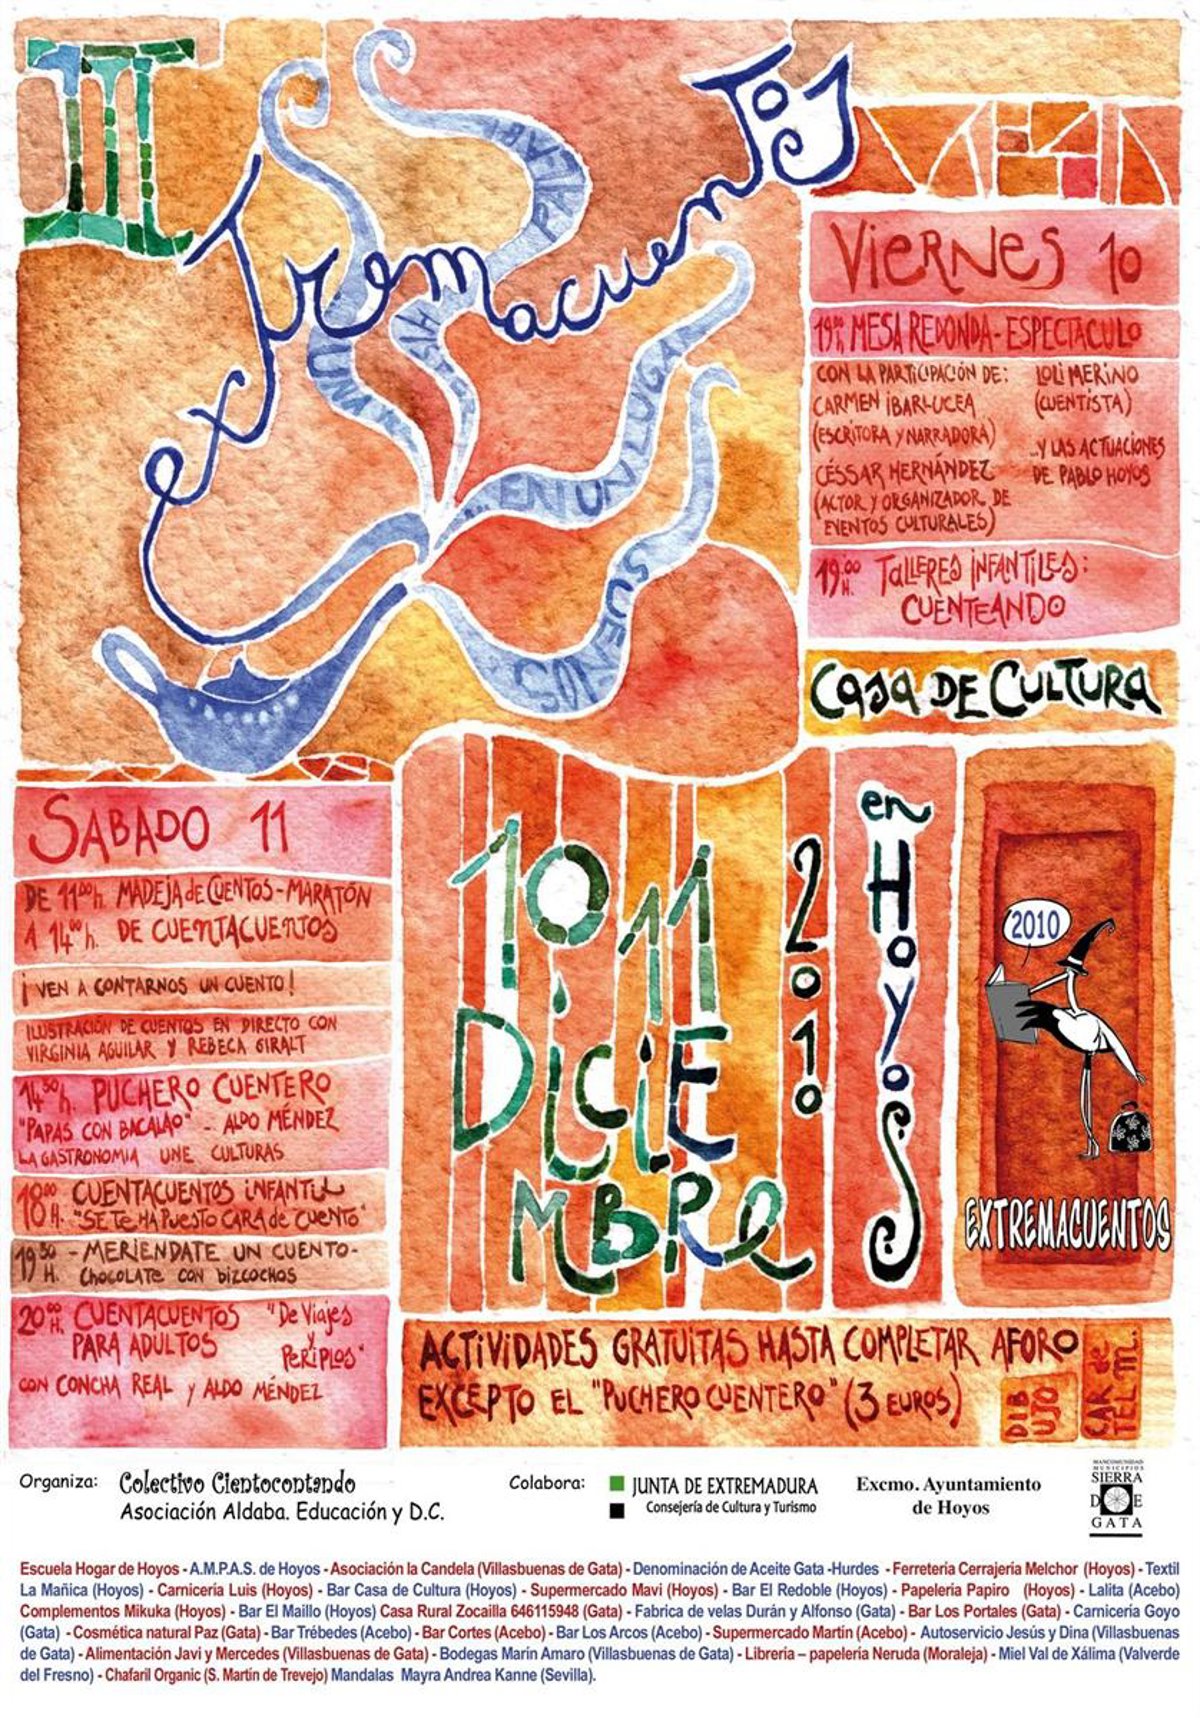 III
exTremacuenTos
PALABR
UNA
HISTOR
... EN UN LUGAR
SUEÑOS
VIERNES 10
19:00 h. MESA REDONDA - ESPECTÁCULO
CON LA PARTICIPACIÓN DE:
CARMEN IBARLUCEA
(ESCRITORA Y NARRADORA)
CÉSSAR HERNÁNDEZ
(ACTOR Y ORGANIZADOR DE
EVENTOS CULTURALES)
LOLI MERINO
(CUENTISTA)
...Y LAS ACTUACIONES
DE PABLO HOYOS
19:00 H. TALLERES INFANTILES:
CUENTEANDO
CASA DE CULTURA
SABADO 11
DE 11:00 h. MADEJA de CUENTOS - MARATÓN
A 14:00 h. DE CUENTACUENTOS
¡VEN A CONTARNOS UN CUENTO!
ILUSTRACIÓN DE CUENTOS EN DIRECTO CON
VIRGINIA AGUILAR Y REBECA GIRALT
14:30 h. PUCHERO CUENTERO
"PAPAS CON BACALAO" - ALDO MÉNDEZ
LA GASTRONOMIA UNE CULTURAS
18:00 H. CUENTACUENTOS INFANTIL
"SE TE HA PUESTO CARA de CUENTO"
19:30 H. - MERIENDATE UN CUENTO -
CHOCOLATE CON BIZCOCHOS
20:00 H. CUENTACUENTOS "De Viajes
PARA ADULTOS y PERIPLOS"
CON CONCHA REAL y ALDO MÉNDEZ
10 11
DICIE
MBRE
2010
en HOYOS
2010
EXTREMACUENTOS
ACTIVIDADES GRATUITAS HASTA COMPLETAR AFORO
EXCEPTO EL "PUCHERO CUENTERO" (3 EUROS)
DIB
UJO
CAR de
TEL M.
Organiza: Colectivo Cientocontando
Asociación Aldaba. Educación y D.C.
Colabora: JUNTA DE EXTREMADURA
Consejería de Cultura y Turismo
Excmo. Ayuntamiento
de Hoyos
MANCOMUNIDAD
MUNICIPIOS
SIERRA
DE
GATA
Escuela Hogar de Hoyos - A.M.P.A.S. de Hoyos - Asociación la Candela (Villasbuenas de Gata) - Denominación de Aceite Gata -Hurdes - Ferretería Cerrajería Melchor (Hoyos) - Textil
La Mañica (Hoyos) - Carnicería Luis (Hoyos) - Bar Casa de Cultura (Hoyos) - Supermercado Mavi (Hoyos) - Bar El Redoble (Hoyos) - Papelería Papiro (Hoyos) - Lalita (Acebo)
Complementos Mikuka (Hoyos) - Bar El Maillo (Hoyos) Casa Rural Zocailla 646115948 (Gata) - Fabrica de velas Durán y Alfonso (Gata) - Bar Los Portales (Gata) - Carnicería Goyo
(Gata) - Cosmética natural Paz (Gata) - Bar Trébedes (Acebo) - Bar Cortes (Acebo) - Bar Los Arcos (Acebo) - Supermercado Martín (Acebo) - Autoservicio Jesús y Dina (Villasbuenas
de Gata) - Alimentación Javi y Mercedes (Villasbuenas de Gata) - Bodegas Marín Amaro (Villasbuenas de Gata) - Librería – papelería Neruda (Moraleja) - Miel Val de Xálima (Valverde
del Fresno) - Chafaril Organic (S. Martín de Trevejo) Mandalas Mayra Andrea Kanne (Sevilla).